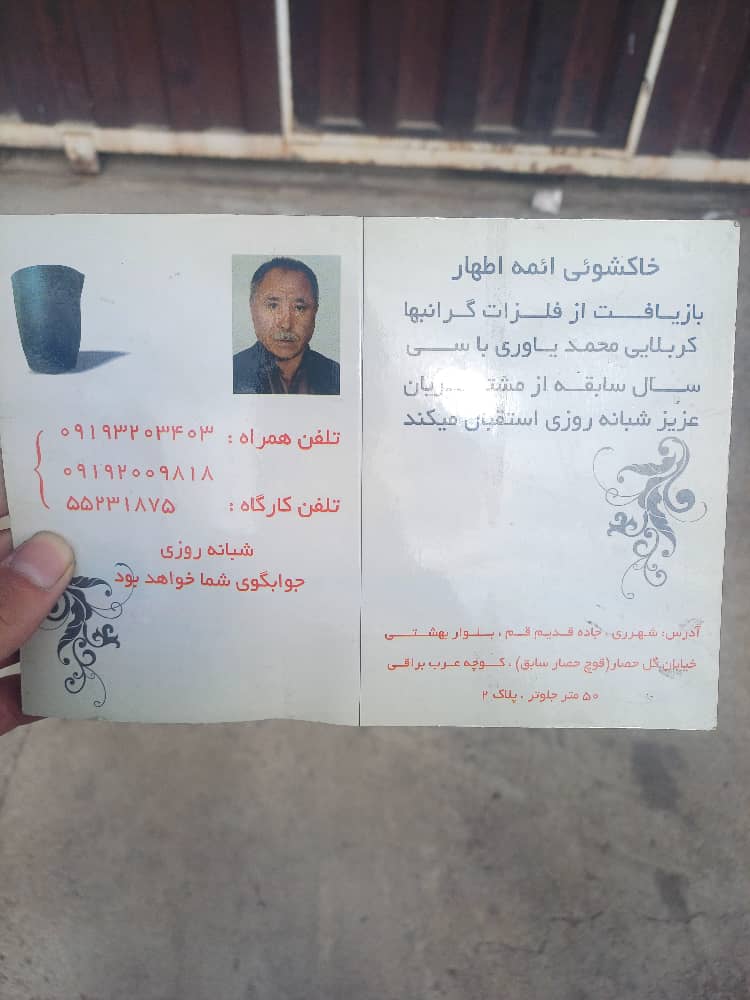 خاکشوئی ائمه اطهار
بازیافت از فلزات گرانبها
کربلایی محمد یاوری با سی
سال سابقه از مشتریان
عزیز شبانه روزی استقبال میکند
آدرس: شهرری ، جاده قدیم قم ، بلوار بهشتی
خیابان گل حصار(قوچ حصار سابق) ، کوچه عرب براقی
۵۰ متر جلوتر ، پلاک ۲
تلفن همراه : ۰۹۱۹۳۲۰۳۴۰۳
۰۹۱۹۲۰۰۹۸۱۸
تلفن کارگاه : ۵۵۲۳۱۸۷۵
شبانه روزی
جوابگوی شما خواهد بود